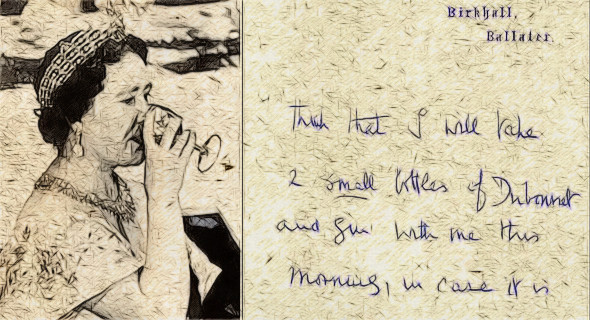 Birkhall,
Ballater.
think that I will take
2 small bottles of Dubonnet
and gin with me this
morning, in case it is